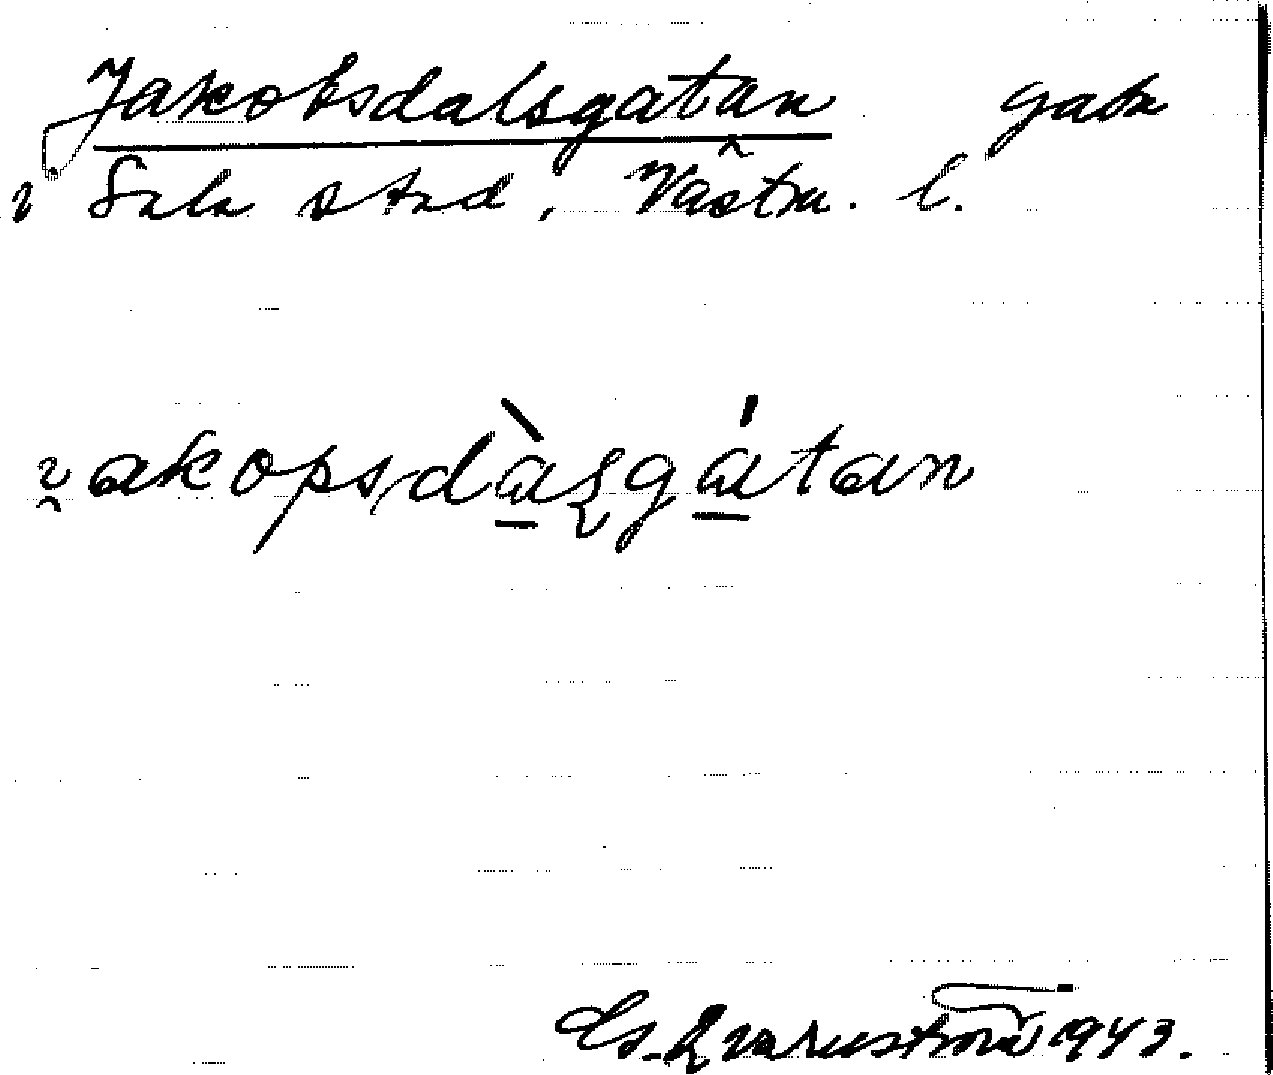 Jakobsdalsgatan gata
i Sala stad, Västm. l.
i̯akopsdàlsgátan
Es. Qvarnström 1943.